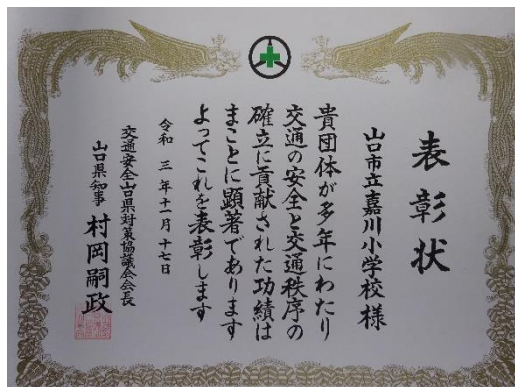 表彰状
山口市立嘉川小学校様
貴団体が多年にわたり
交通の安全と交通秩序の
確立に貢献された功績は
まことに顕著であります
よってこれを表彰します
令和三年十一月十七日
交通安全山口県対策協議会会長
山口県知事 村岡嗣政